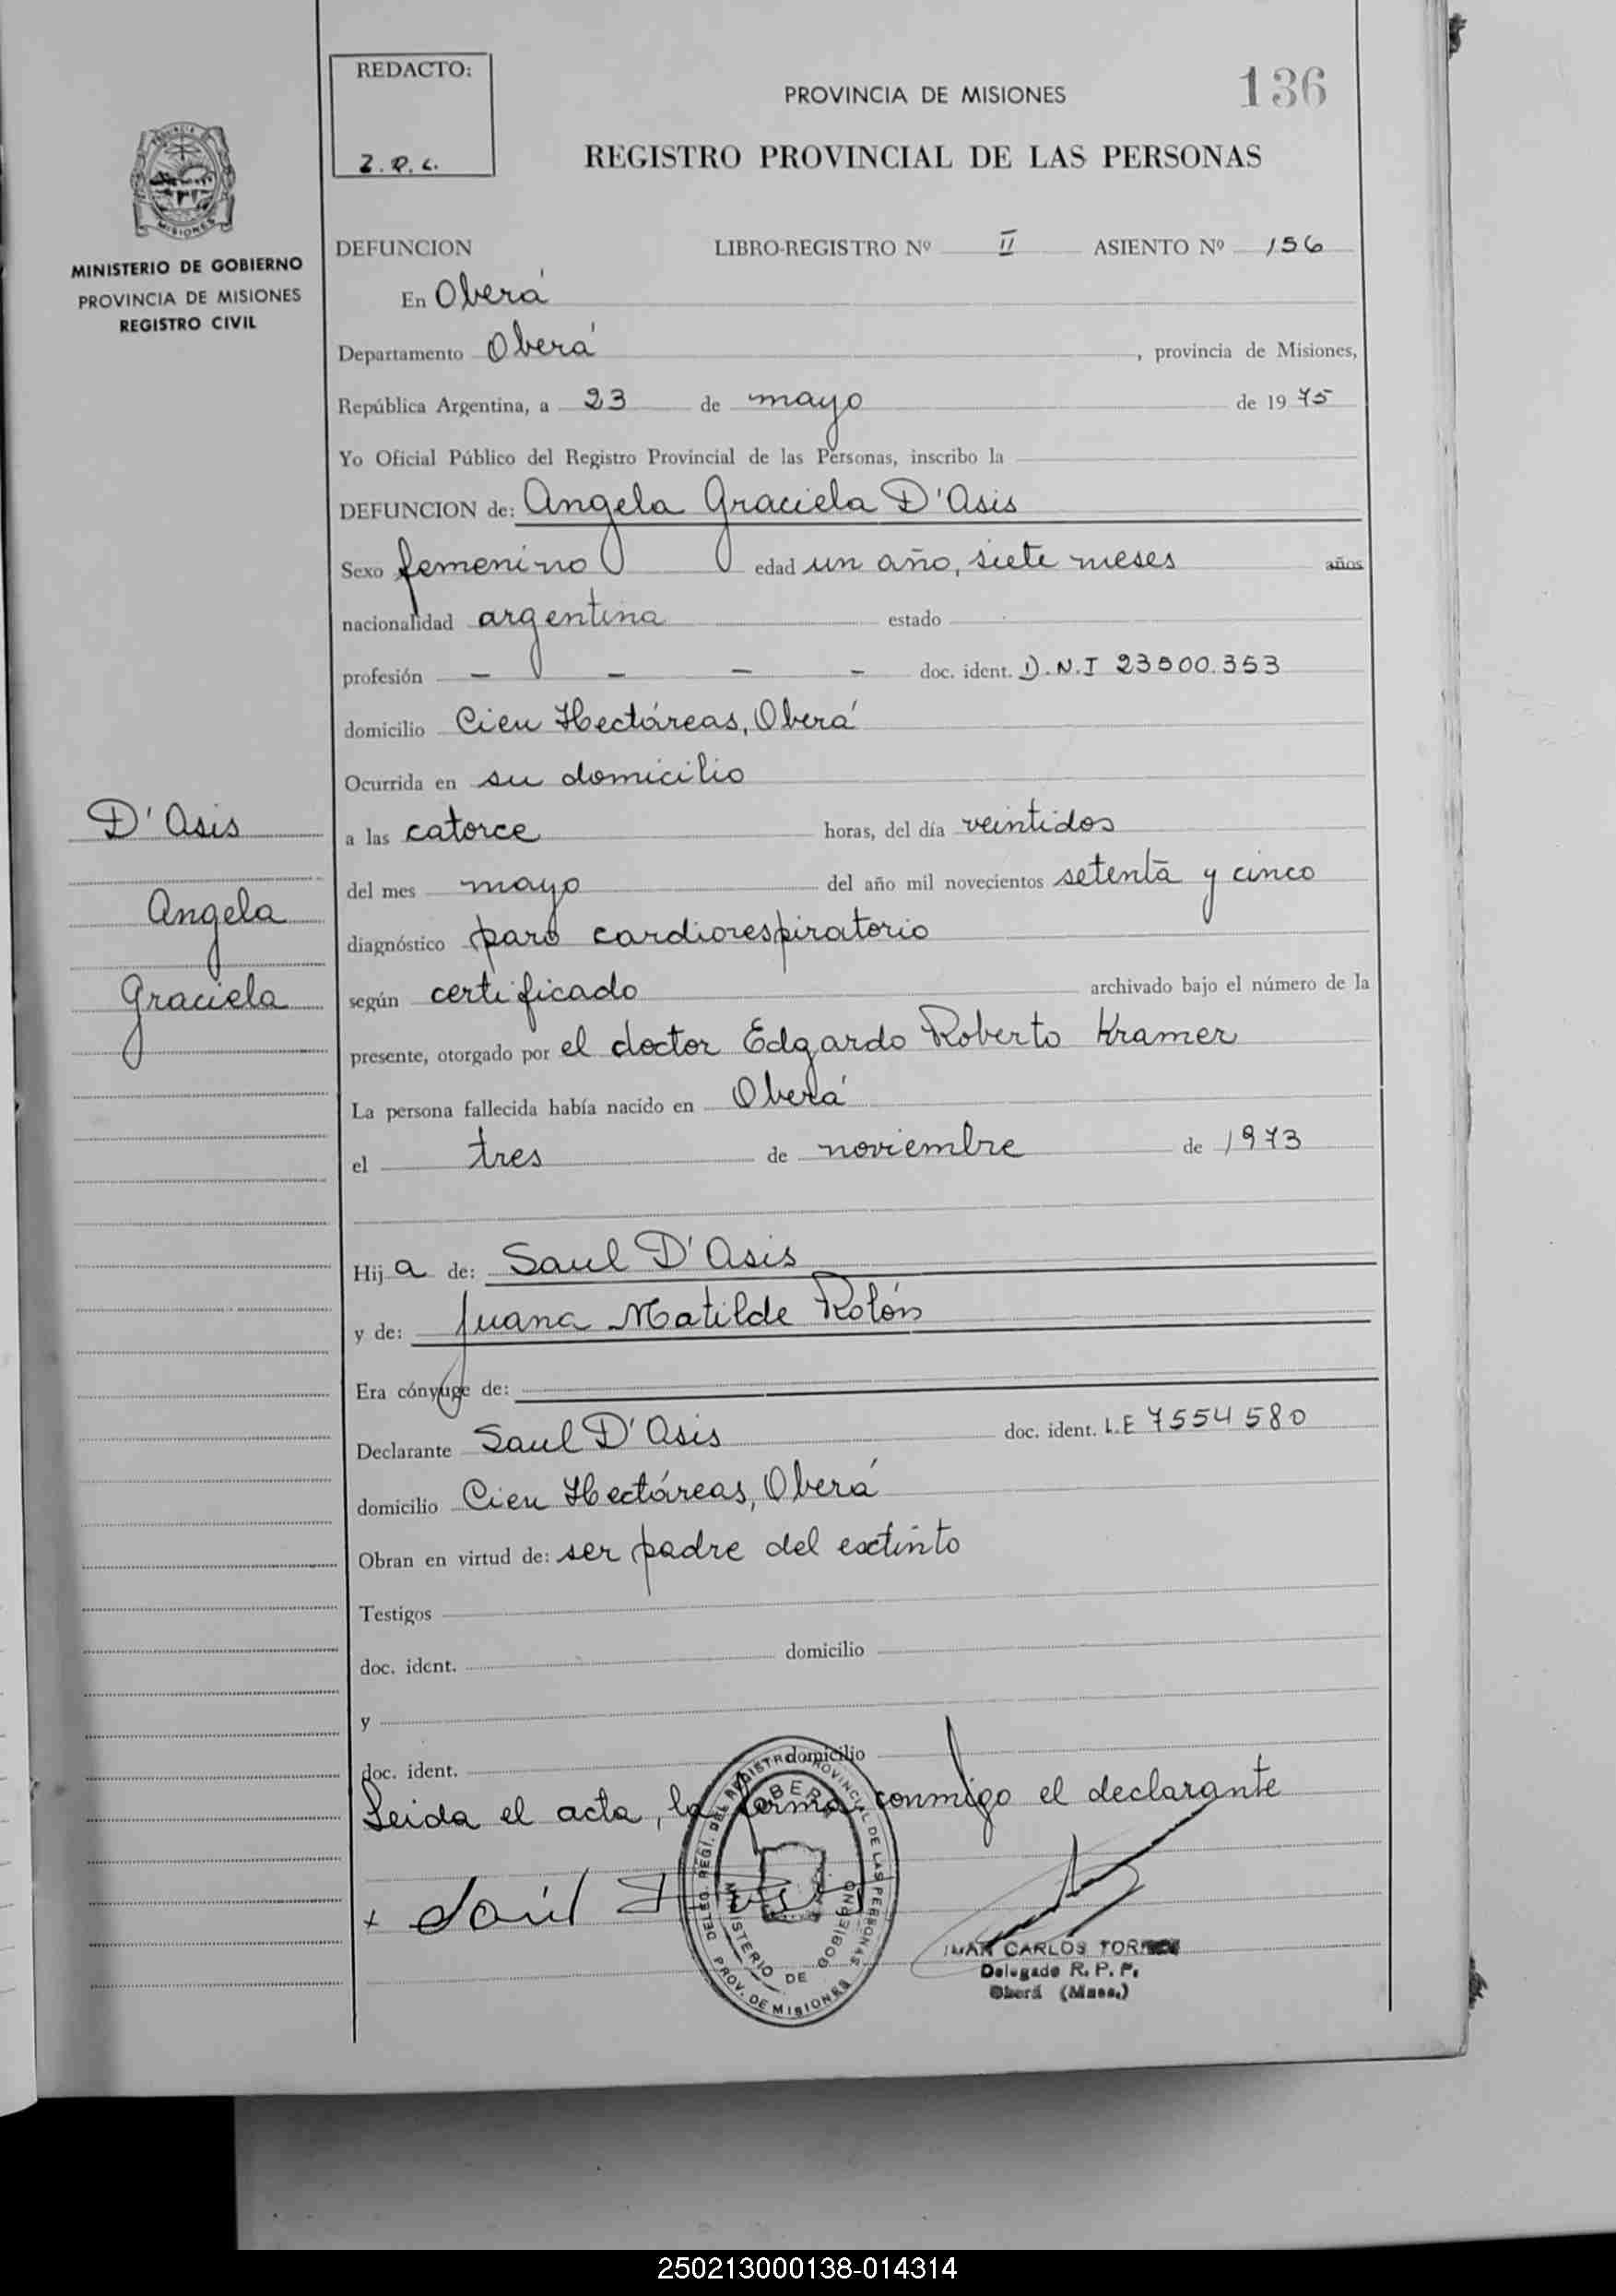 REDACTO:
Z. R. L.
PROVINCIA DE MISIONES
136
REGISTRO PROVINCIAL DE LAS PERSONAS
MISIONES
MINISTERIO DE GOBIERNO
PROVINCIA DE MISIONES
REGISTRO CIVIL
DEFUNCION LIBRO-REGISTRO Nº II ASIENTO Nº 156
En Oberá
Departamento Oberá, provincia de Misiones,
República Argentina, a 23 de mayo de 1975
Yo Oficial Público del Registro Provincial de las Personas, inscribo la
DEFUNCION de: Angela Graciela D'Asis
Sexo femenino edad un año, siete meses años
nacionalidad argentina estado
profesión — — — — doc. ident. D.N.I 23500.353
domicilio Cien Hectáreas, Oberá
Ocurrida en su domicilio
D' Asis
Angela
Graciela
a las catorce horas, del día veintidos
del mes mayo del año mil novecientos setenta y cinco
diagnóstico paro cardiorespiratorio
según certificado archivado bajo el número de la
presente, otorgado por el doctor Edgardo Roberto Kramer
La persona fallecida había nacido en Oberá
el tres de noviembre de 1973
Hija de: Saul D'Asis
y de: Juana Matilde Rolón
Era cónyuge de:
Declarante Saul D'Asis doc. ident. L.E 7554580
domicilio Cien Hectáreas, Oberá
Obran en virtud de: ser padre del extinto
Testigos
doc. ident. domicilio
y
doc. ident. domicilio
Leida el acta, la firma conmigo el declarante
+ Saúl
DELEG. REGI. DEL REGISTRO PROVINCIAL DE LAS PERSONAS
OBERA
MINISTERIO DE GOBIERNO
PROV. DE MISIONES
JUAN CARLOS TORRES
Delegado R. P. P.
Oberá (Mnes.)
250213000138-014314